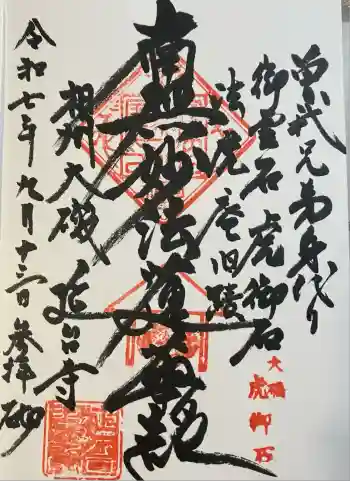 曽我兄弟身代り
御霊石 虎御石
法虎庵旧蹟
南無妙法蓮華経
相州大磯 延台寺
令和七年九月十三日 参拝
大磯
虎御石